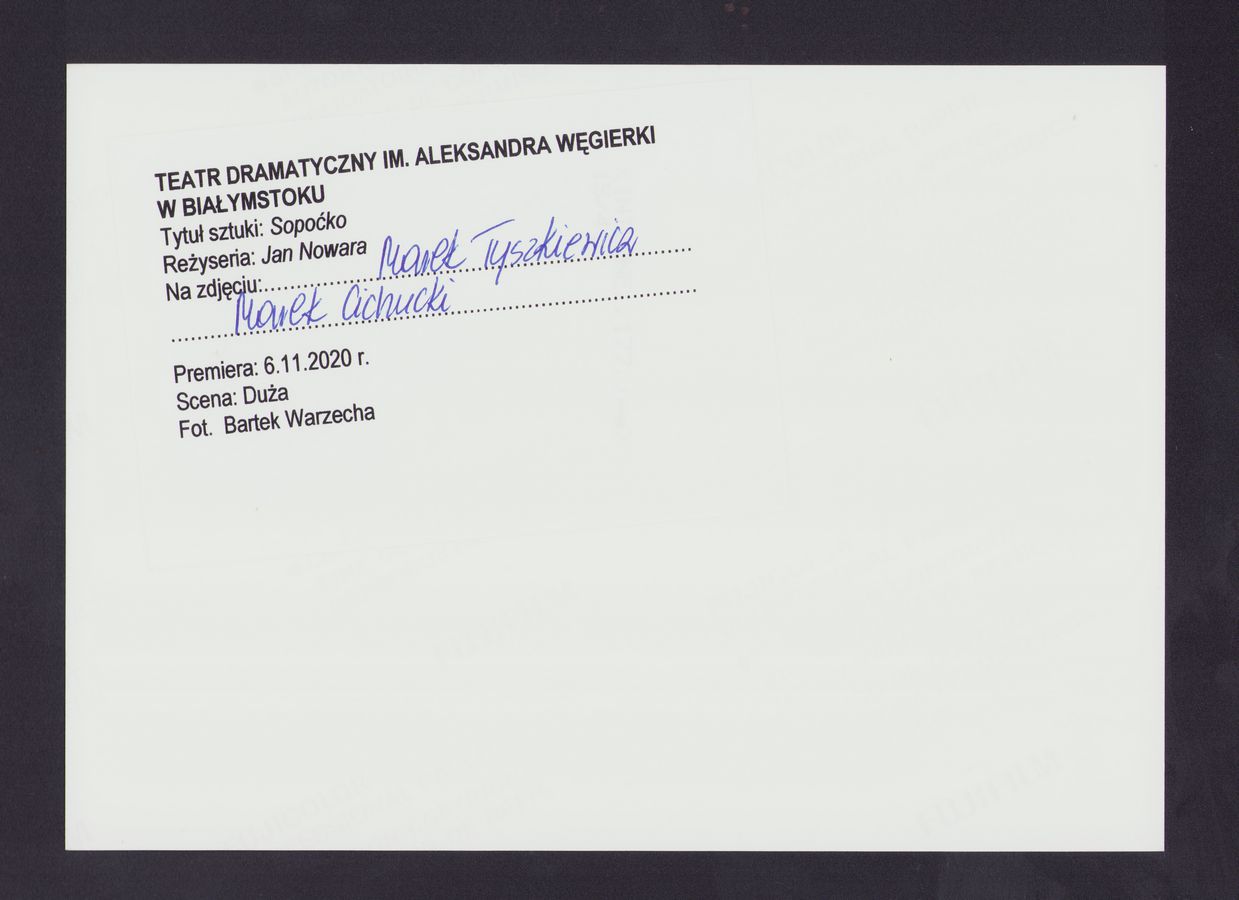 TEATR DRAMATYCZNY IM. ALEKSANDRA WĘGIERKI
W BIAŁYMSTOKU
Tytuł sztuki: Sopoćko
Reżyseria: Jan Nowara
Na zdjęciu: Marek Tyszkiewicz
Marek Cichucki
Premiera: 6.11.2020 r.
Scena: Duża
Fot. Bartek Warzecha